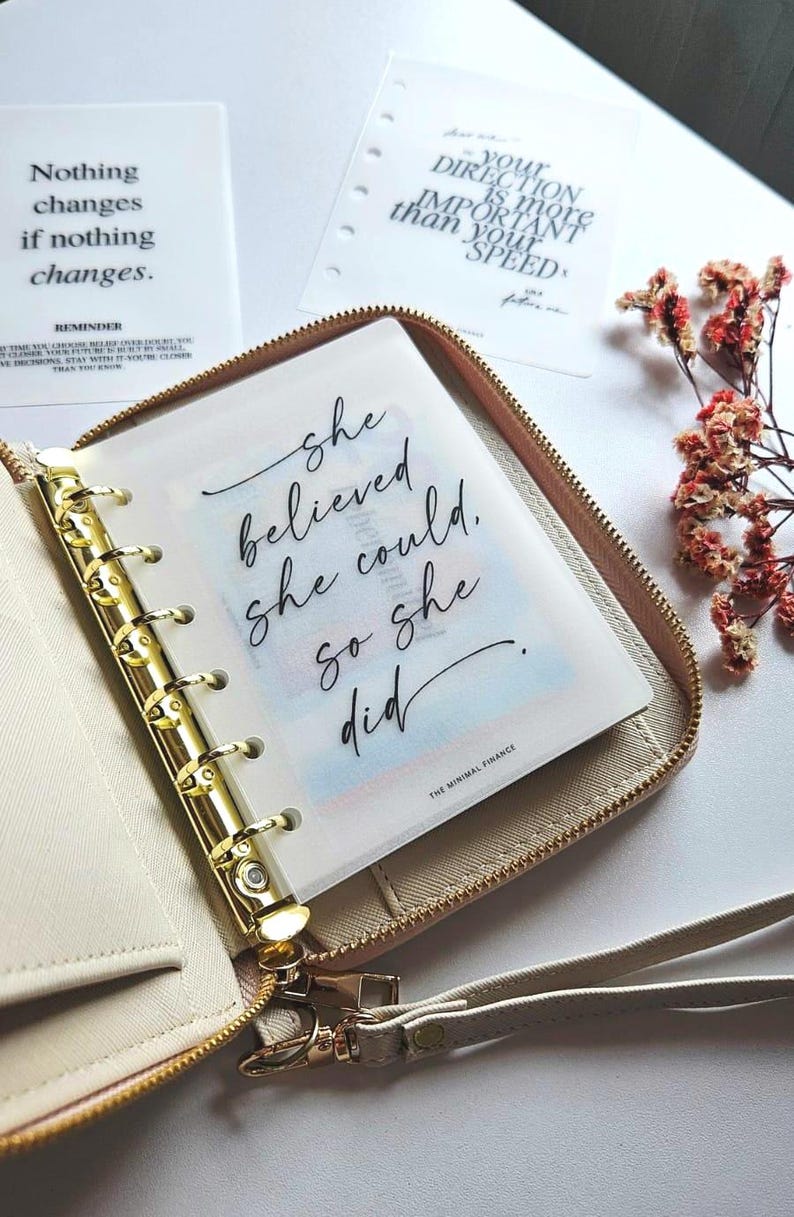 Nothing
changes
if nothing
changes.
REMINDER
TIME YOU CHOOSE BELIEF OVER DOUBT, YOU
CLOSER. YOUR FUTURE IS BUILT BY SMALL,
DECISIONS. STAY WITH IT-YOU'RE CLOSER
THAN YOU KNOW.
your
DIRECTION
is more
IMPORTANT
than your
SPEED
future me
she
believed
she could,
so she
did.
THE MINIMAL FINANCE